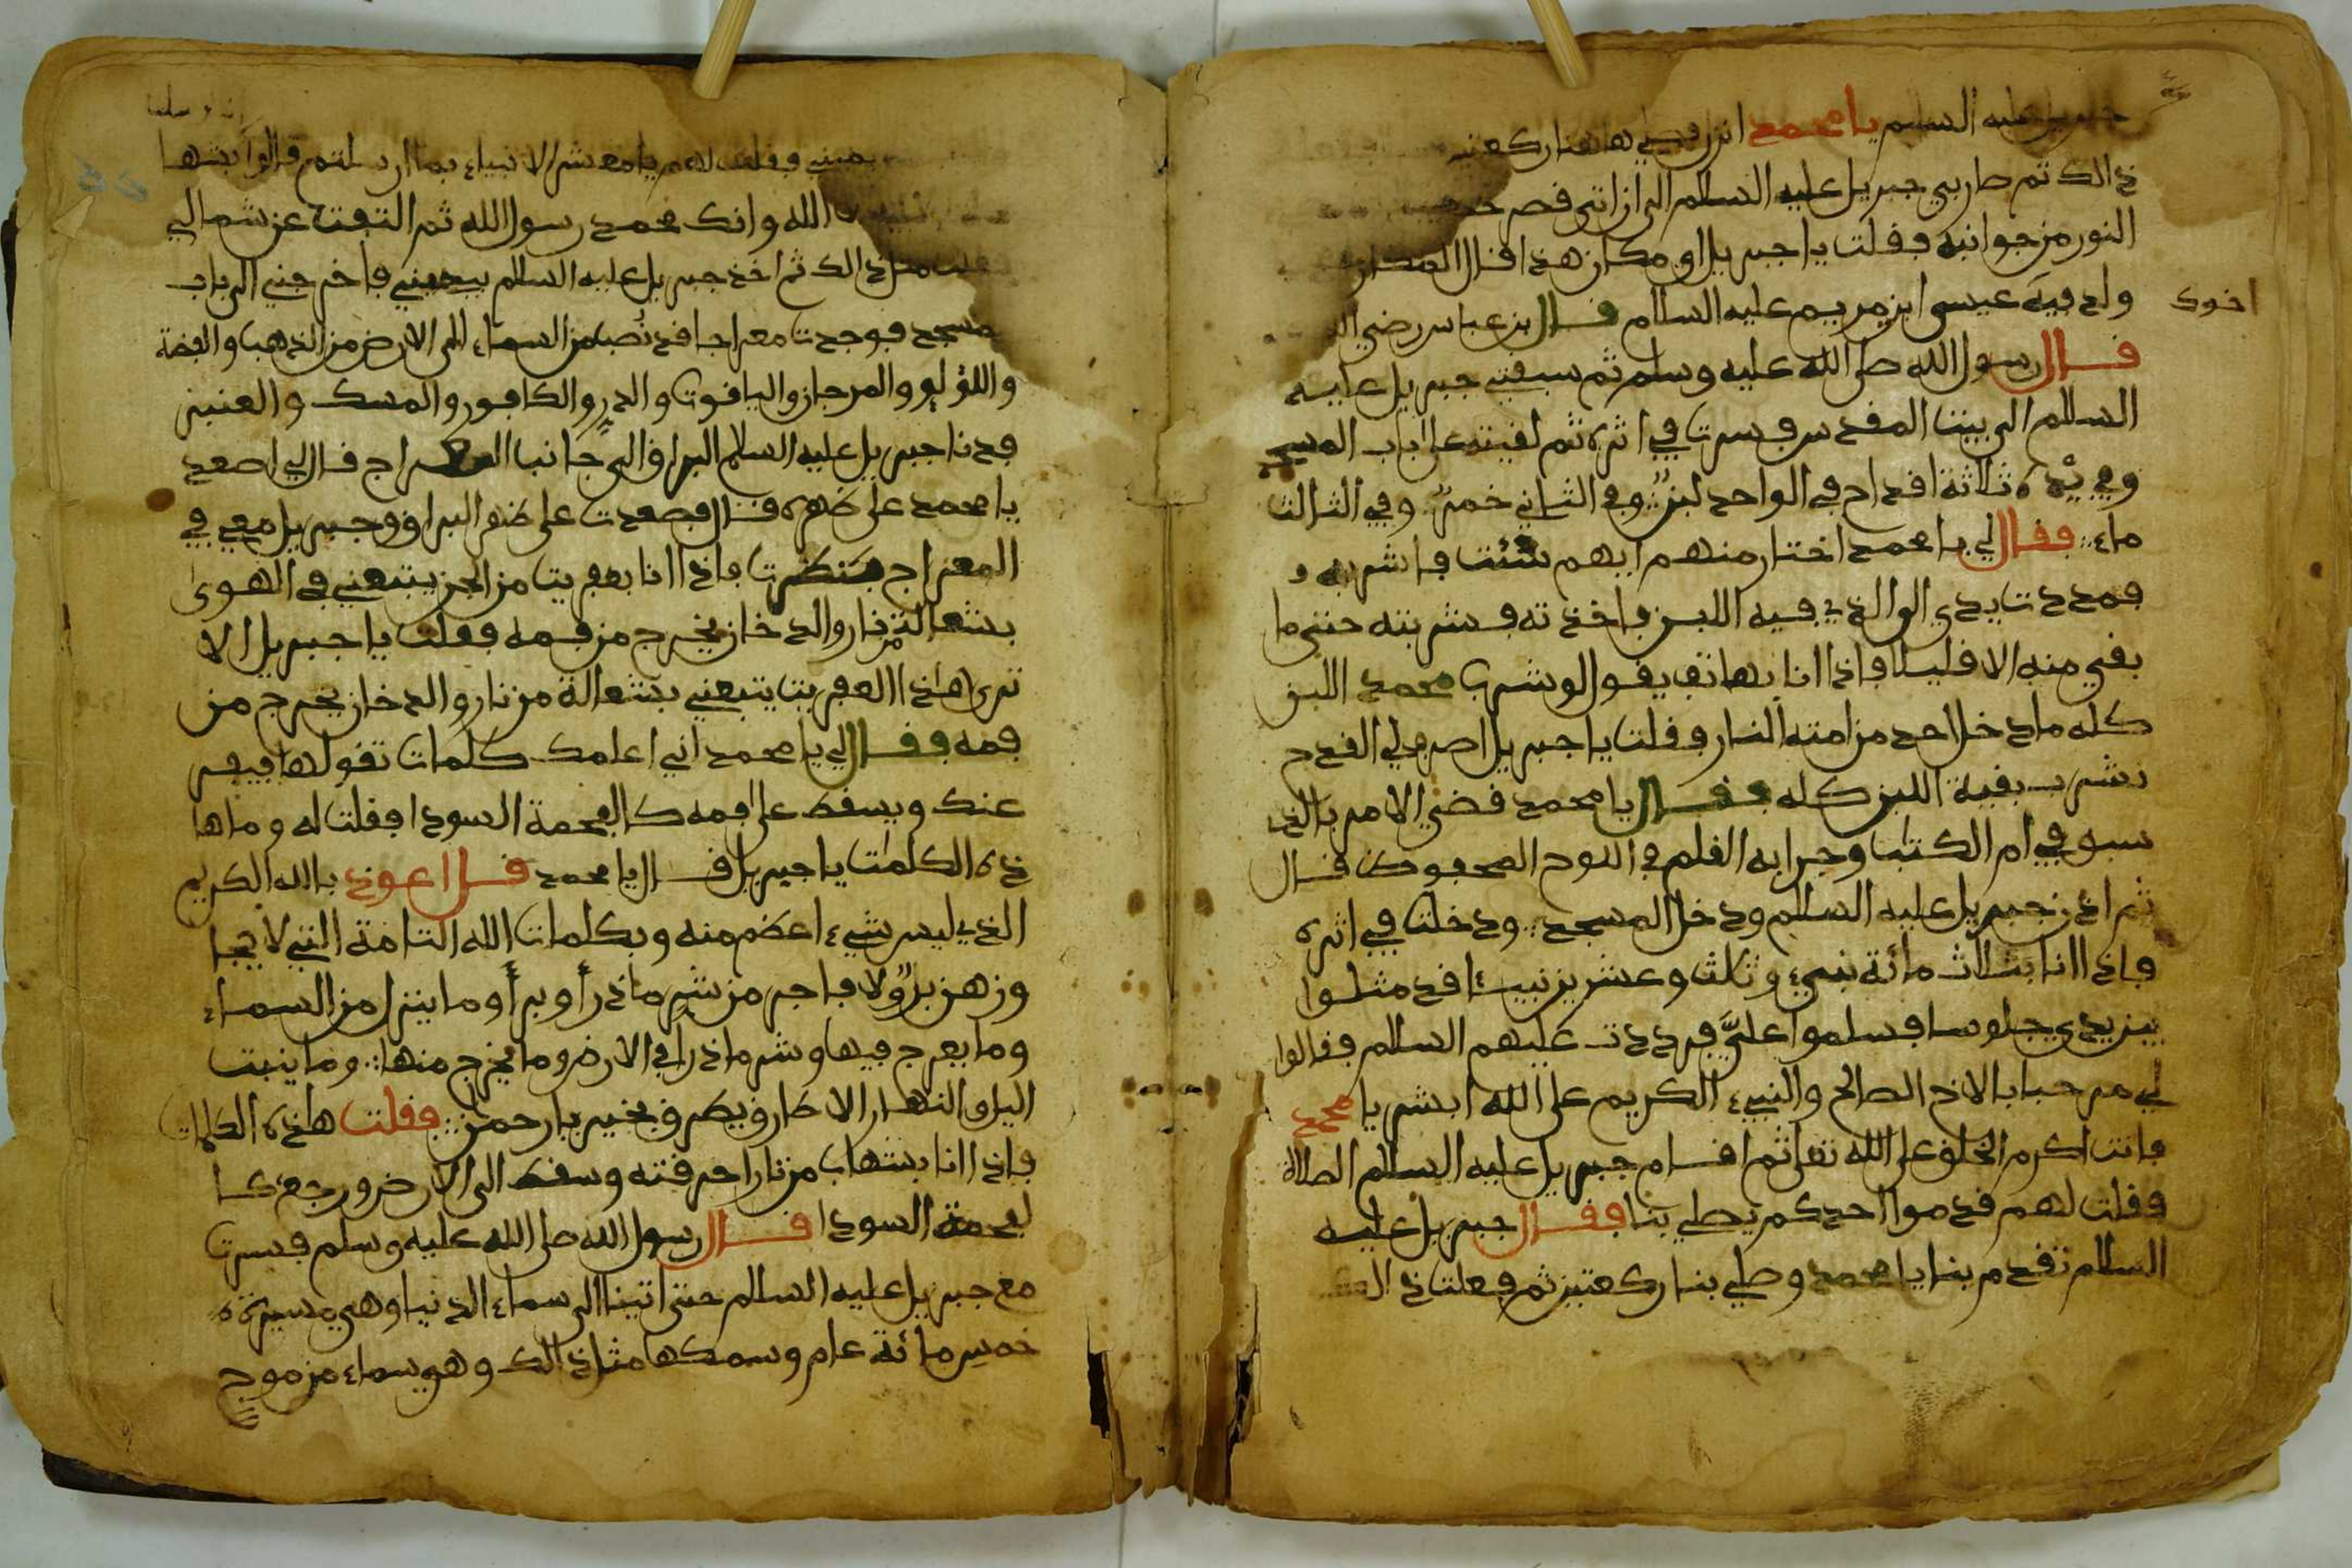 جبريل عليه السلم يا محمد انزل فصلي هاهنا ركعتين
ذالك ثم طار بي جبريل عليه السلام الى ان اتى قصر
النور من جوانبه فقلت يا جبريل اي مكان هذا قال المكان
ولد فيه عيسى ابن مريم عليه السلام قال بن عباس رضي
اخوك
قال رسول الله صلى الله عليه وسلم ثم سبقني جبريل عليه
السلام الى بيت المقدس فسرت في اثره ثم لقيته على باب المسجد
وفي يده ثلاثة اقداح في الواحد لبن وفي الثاني خمر وفي الثالث
ماء فقال لي يا محمد اختار منهم ايهم شئت فاشربه و
فمددت يدي الى الذي فيه اللبن فاخذته فشربته حتى ما
بقي منه الا قليلا فاذا انا بهاتف يقول لو شرب محمد اللبن
كله ما دخل احد من امته النار فقلت يا جبريل اصرف لي القدح
نشرب بقية اللبن كله فقال يا محمد قضي الامر بالذي
سبق في ام الكتب وجرا به القلم في اللوح المحفوظ قال
ثم اذن جبريل عليه السلم ودخل المسجد ودخلت في اثره
فاذا انا بثلاث مائة نبيء وثلث وعشرين نبيئا قد مثلوا
بين يدي جلوسا فسلموا عليَّ فرددت عليهم السلم فقالوا
لي مرحبا بالاخ الصالح والنبيء الكريم على الله ابشر يا محمد
فانت اكرم الخلق على الله تعلى ثم اقام جبريل عليه السلم الصلاة
فقلت لهم قدموا احدكم يصلي بنا فقال جبريل عليه
السلام تقدم بنا يا محمد وصلي بنا ركعتين ثم فعلت ذالك
يميني فقلت لهم يا معشر الانبياء بما ارسلتم قالوا بشهـا
الله وانك محمد رسول الله ثم التفت عن شمالي
فقلت مثل ذالك ثم اخذ جبريل عليه السلم بيميني فاخرجني الى باب
المسجد فوجدت معراجا قد نُصبا من السماء الى الارض من الذهب والفضة
واللؤلؤ والمرجان والياقوت والدر والكافور والمسك والعنبر
فدنا جبريل عليه السلام البراق الى جانب المعراج قال لي اصعد
يا محمد على ظهره قال فصعدت على ظهر البراق وجبريل معي في
المعراج فنظرت فاذا انا بعفريت من الجن يتبعني في الهوى
بشعالة من نار والدخان يخرج من فمه فقلت يا جبريل الا
ترى هذا العفريت يتبعني بشعالة من نار والدخان يخرج من
فمه فقال لي يا محمد اني اعلمك كلمات تقولها فيفر
عنك ويسقط على فمه كالفحمة السودا فقلت له وما ها
ذه الكلمت يا جبريل قال يا محمد قل اعوذ بالله الكريم
الذي ليس شيء اعظم منه وبكلمات الله التامة التي لا يجا
وزهن برٌّ ولا فاجر من شر ما ذرأ وبرأ وما ينزل من السماء
وما يعرج فيها وشر ما ذرا في الارض وما يخرج منها وما ينبت
اليل والنهار الا طارق يطرق بخير يا رحمن فقلت هاذه الكلمات
فاذا انا بشهاب من نار احرقته وسقط الى الارض ورجع كا
لفحمة السودا قال رسول الله صلى الله عليه وسلم فسرت
مع جبريل عليه السلم حتى اتينا الى سماء الدنيا وهي مسيرة
خمس مائة عام وسمكها مثل ذالك وهو سماء من موج